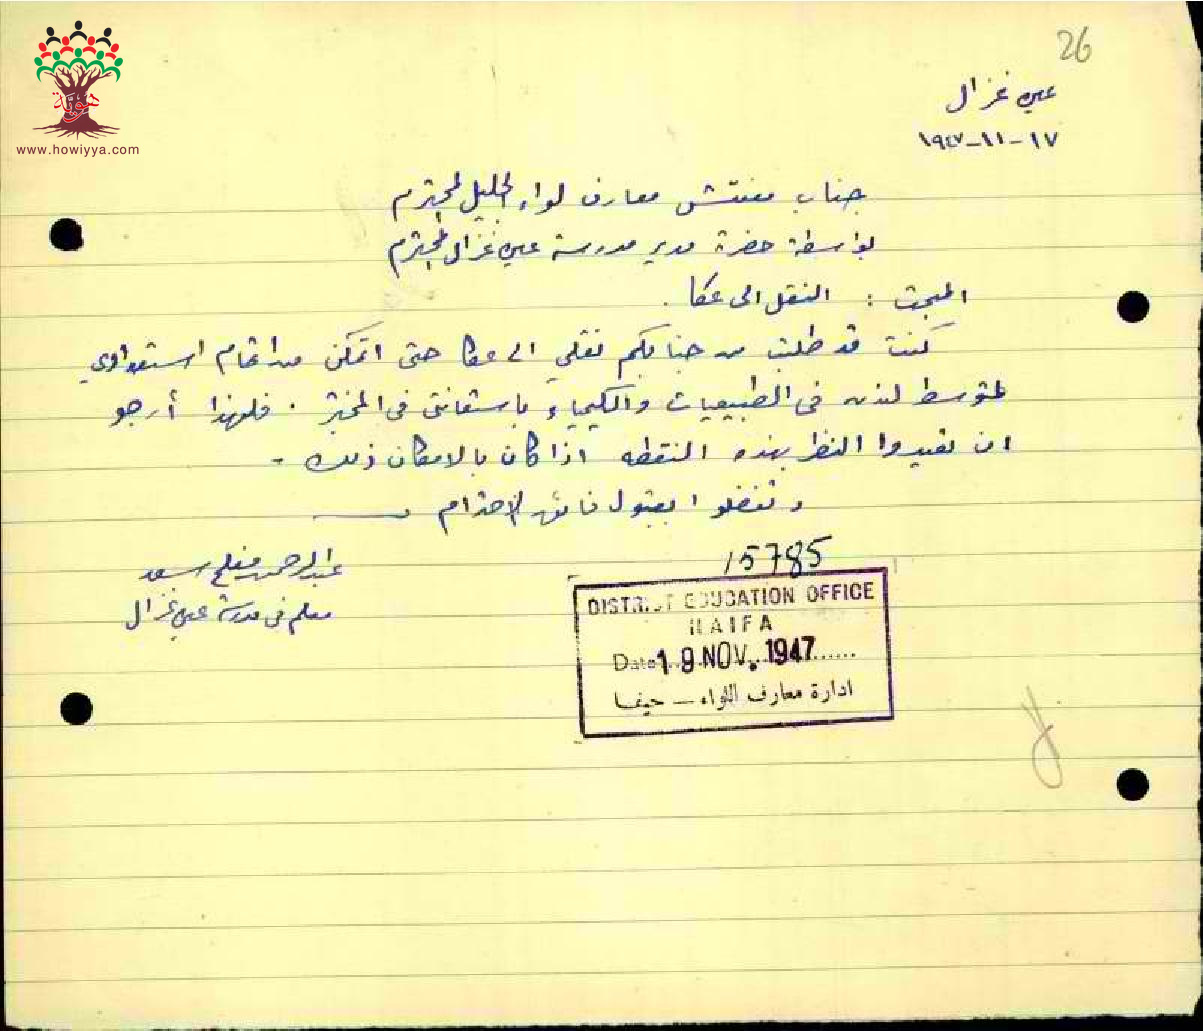 26
هوية
www.howiyya.com
عين غزال
١٧-١١-١٩٤٧
جناب مفتش معارف لواء الجليل المحترم
بواسطة حضرة مدير مدرسة عين غزال المحترم
المبحث : النقل الى عكا .
كنت قد طلبت من جنابكم نقلي الى عكا حتى اتمكن من اتمام استعدادي
للمتوسط لندن في الطبيعيات والكيمياء باستعانتي في المختبر . فلهذا أرجو
ان تعيدوا النظر بهذه النقطه اذا كان بالامكان ذلك -
وتفضلوا بقبول فائق الاحترام
عبد الرحمن مفلح سعد
معلم في مدرسة عين غزال
15785
DISTRICT EDUCATION OFFICE
HAIFA
Date 19 NOV. 1947
ادارة معارف اللواء - حيفا